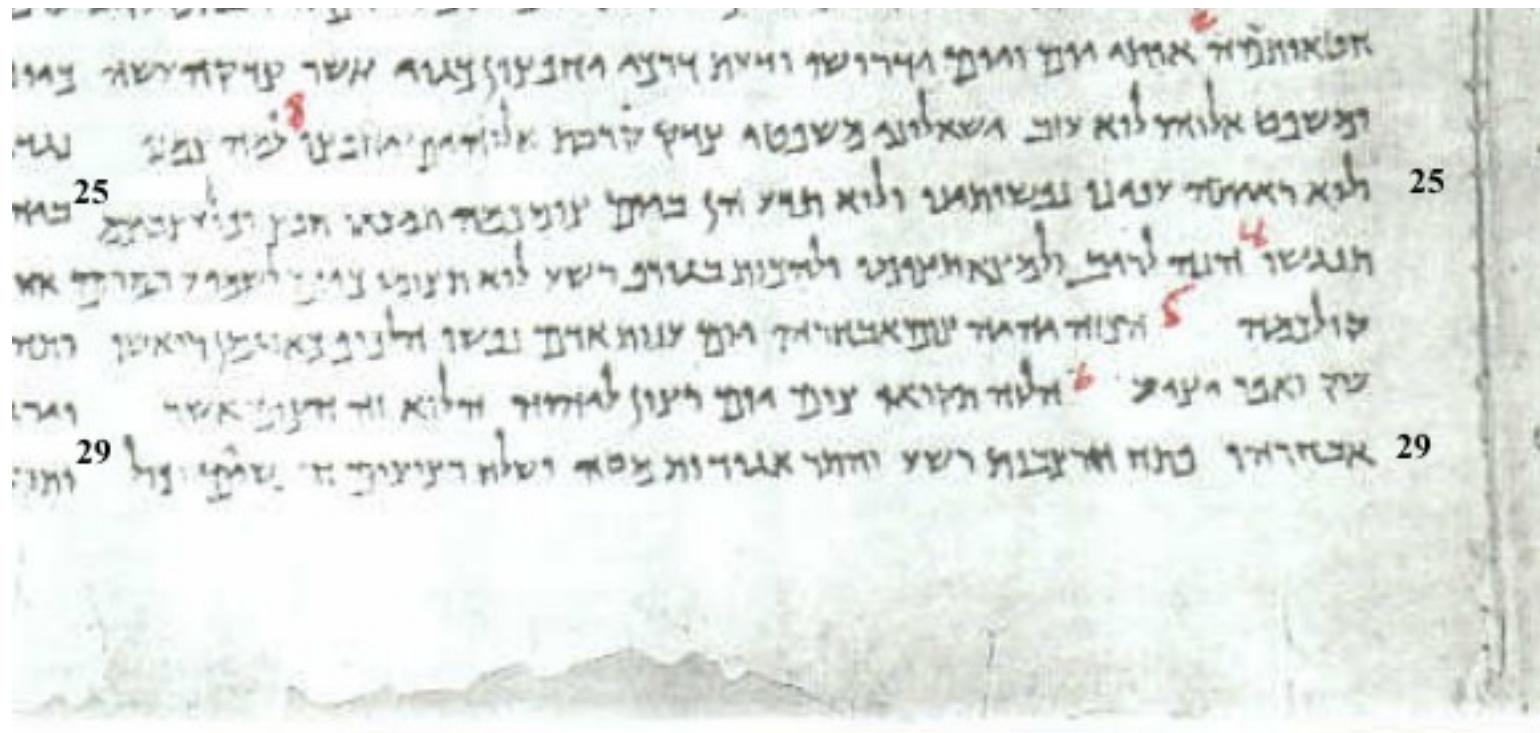 חטאותמה 2 אותי יום ויום ידרושו ודעת דרכי יחפצון כגוי אשר צדקה עשה
ומשפט אלוהו לוא עזב ישאלוני משפטי צדק קרבת אלוהים יחפצו 3 למה צמנו
25 ולוא ראיתה ענינו נפשותינו ולוא תדע הן ביום צומכמה תמצאו חפץ וכול עצביכמה 25
תנגשו 4 הנה לריב ולמצא תצומו ולהכות בגורף רשע לוא תצומו כיום לשמיע במרום
קולכמה 5 הכזה יהיה צום אבחרהו יום ענות אדם נפשו הלכוף כאגמן רואשו
שק ואפר יציע 6 הלזה תקראו צום יום רצון ליהוה הלוא זה הצום אשר
29 אבחרהו פתח חרצבות רשע והתר אגודות מטה ושלח רצוצים וכול 29